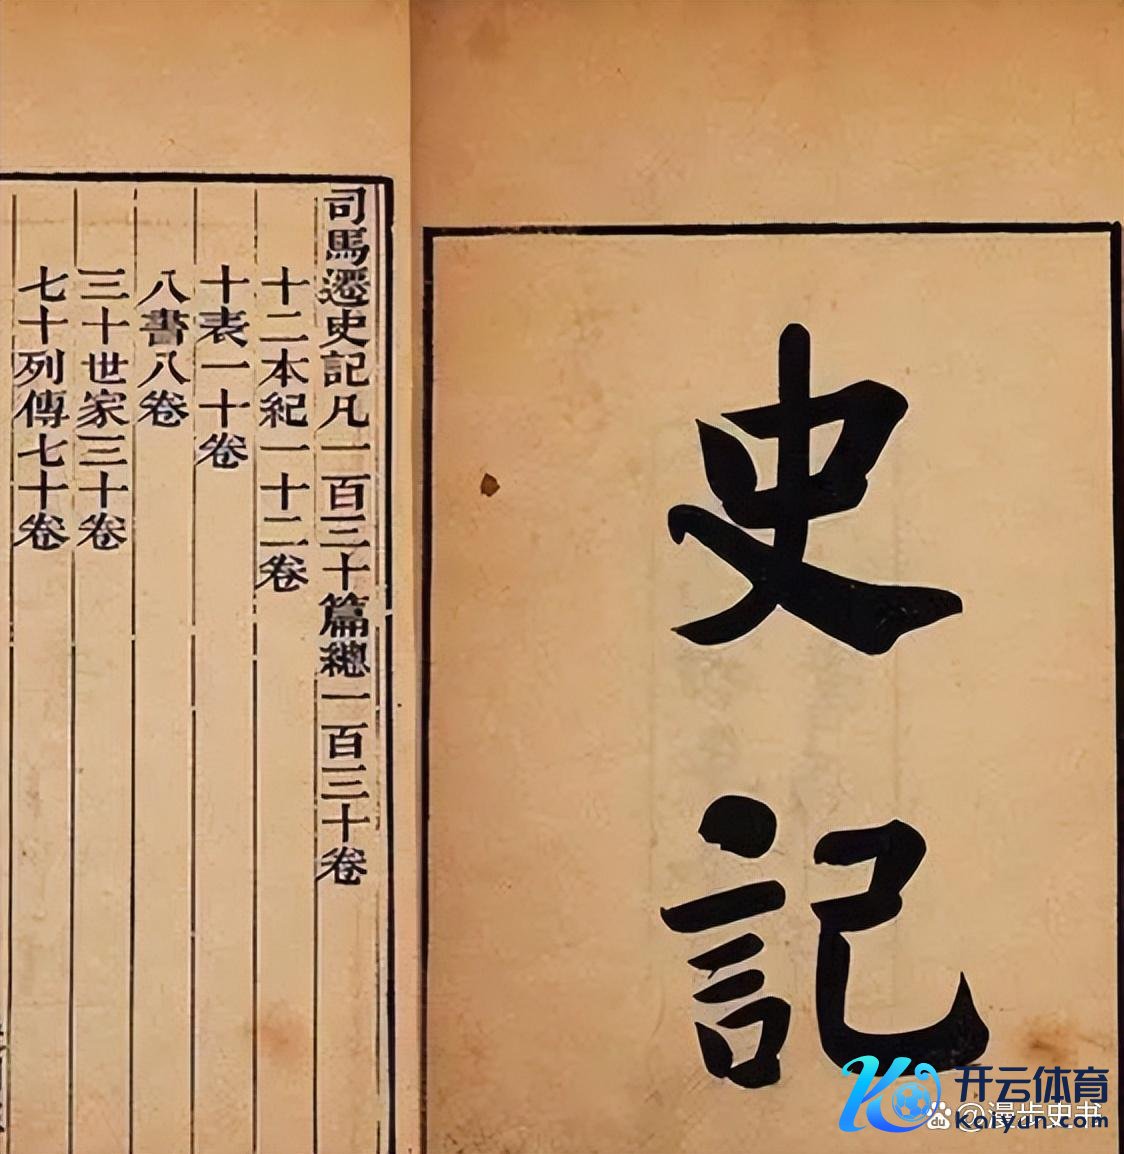 史記
司馬遷史記凡一百三十篇總一百三十卷
十二本紀一十二卷
十表一十卷
八書八卷
三十世家三十卷
七十列傳七十卷
开云体育
kaiyun.com
@漫步史书